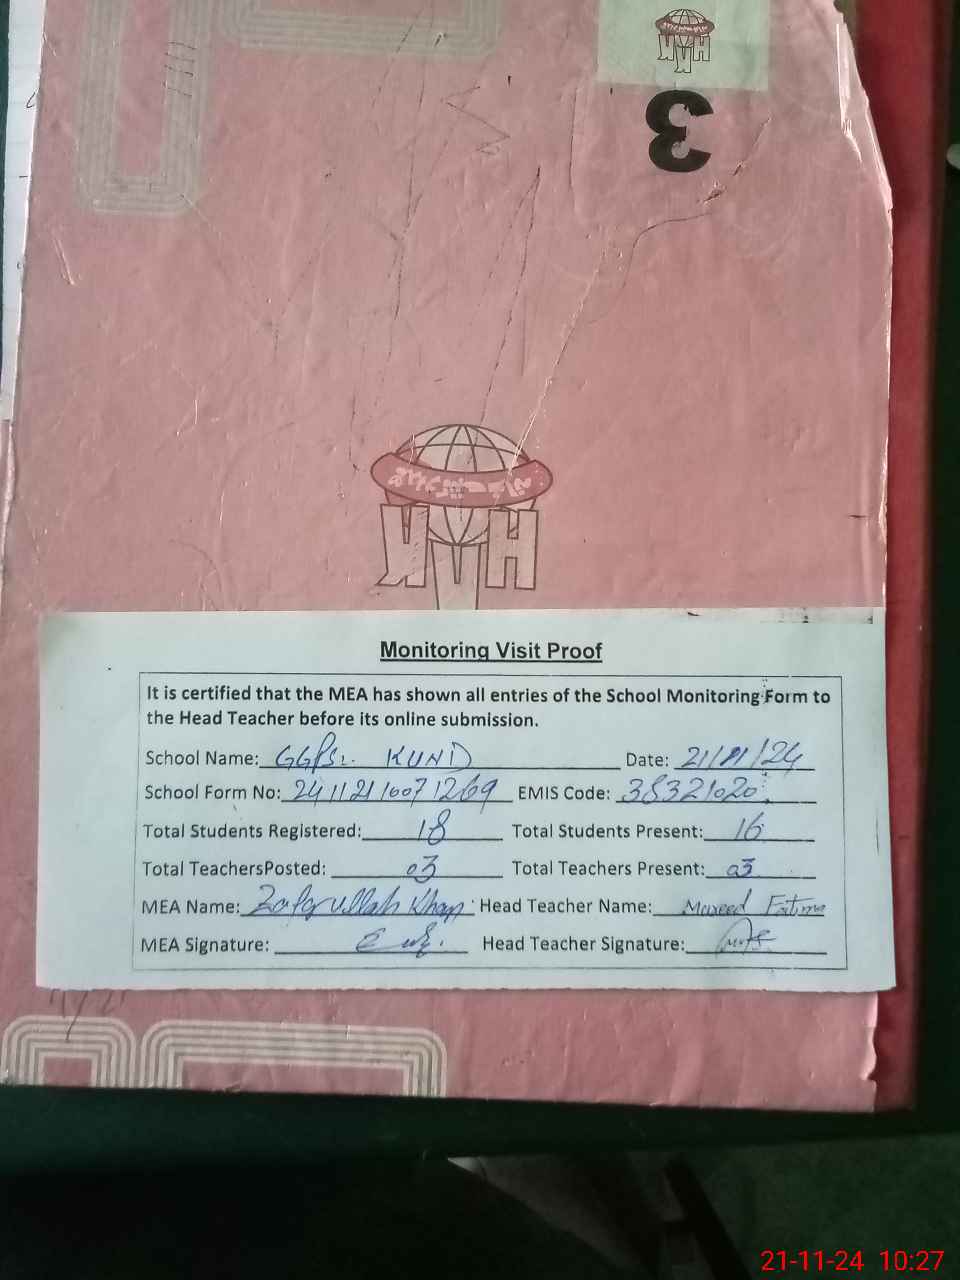 3
Monitoring Visit Proof
It is certified that the MEA has shown all entries of the School Monitoring Form to
the Head Teacher before its online submission.
School Name: GGPS. KUND Date: 21/11/24
School Form No: 241121160071269 EMIS Code: 38321020
Total Students Registered: 18 Total Students Present: 16
Total TeachersPosted: 03 Total Teachers Present: 03
MEA Name: Zafarullah Khan Head Teacher Name: Fatima
MEA Signature: Head Teacher Signature:
21-11-24 10:27